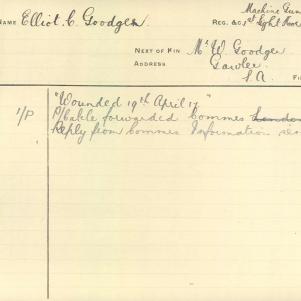 Machine Gun
NAME Elliot. C. Goodgen REG. &C 1st Light Horse
NEXT OF KIN Mr W. Goodgen
ADDRESS Gawler
S.A.
"Wounded 19th April 17"
1/P P/Cable forwarded Commes London
Reply from Commes Information